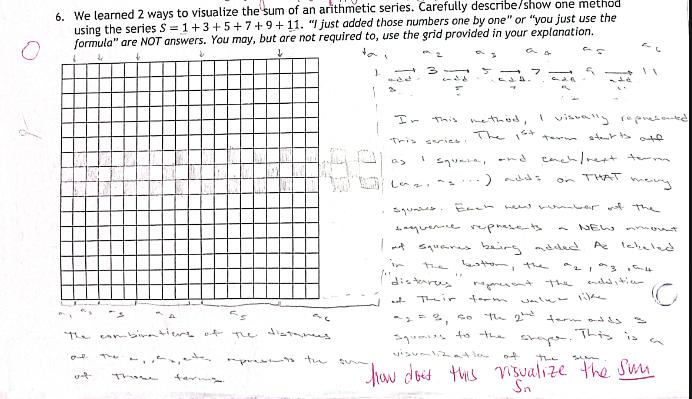 6. We learned 2 ways to visualize the sum of an arithmetic series. Carefully describe/show one method
using the series S = 1 + 3 + 5 + 7 + 9 + 11. "I just added those numbers one by one" or "you just use the
formula" are NOT answers. You may, but are not required to, use the grid provided in your explanation.
a₁ a₂ a₃ a₄ a₅ a₆
1 → 3 → 5 → 7 → 9 → 11
add add add add add
In this method, I visually represented
This series. The 1st term starts off
as 1 square, and each/next term
(a₂, a₃ ...) adds on THAT many
squares. Each new number of the
sequence represents a NEW amount
of squares being added. As labeled
in the bottom, the a₂, a₃, a₄
"distances" represent the addition
of Their term value like
a₂ = 3, so the 2nd term adds 3
squares to the shape. This is a
visualization of the sum.
a₁ a₂ a₃ a₄ a₅ a₆
The combinations of the distances
of the a₁, a₂, etc. represents the sum
of those terms.
how does this visualize the Sum
Sn